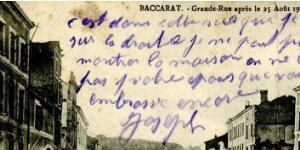 BACCARAT. - Grande-Rue après le 25 Août 19
c'est dans cette rue que je
sur la droite je ne peut pas
montrer la maison on ne
pas votre époux que vous
embrasse encore
Joseph